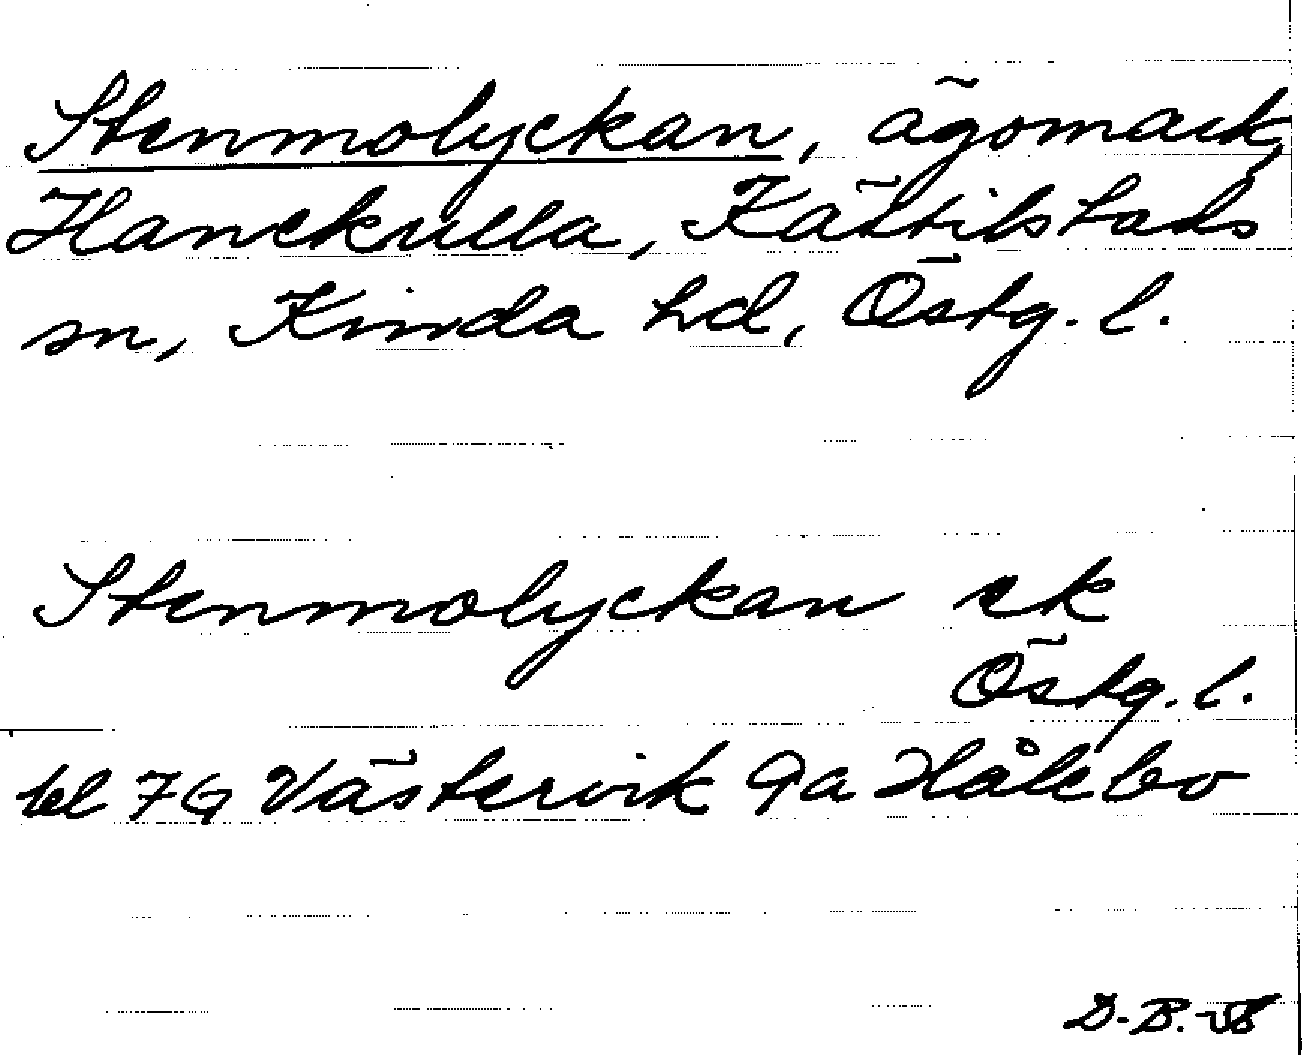 Stenmolyckan, ägomark,
Hanekulla, Kättilstads
sn, Kinda hd, Östg. l.
Stenmolyckan ek
Östg. l.
bl 7G Västervik 9a Hålebo
D.B.